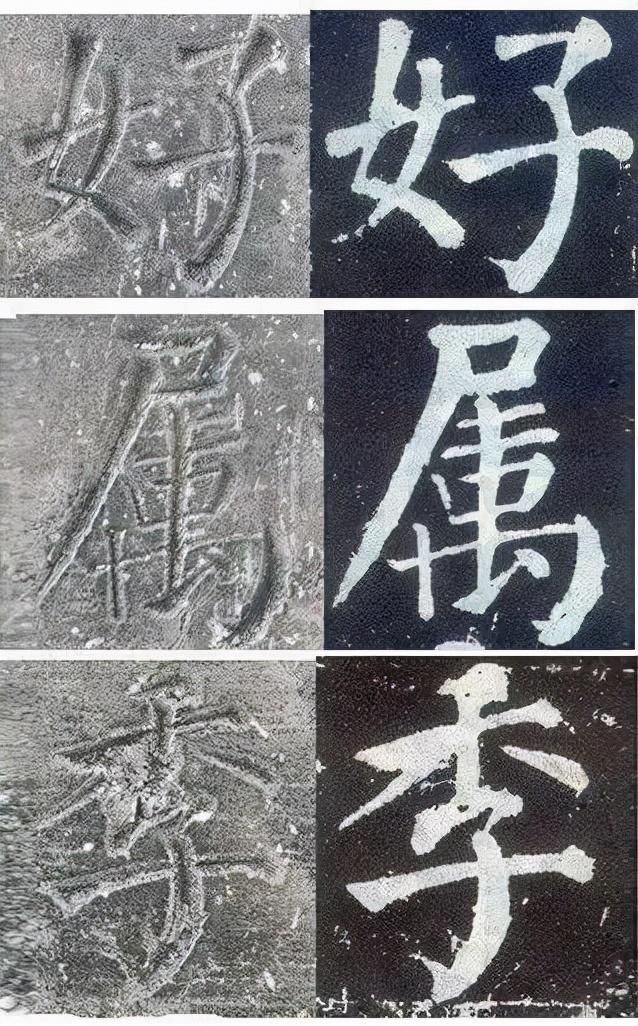 好 好
属 属
季 季